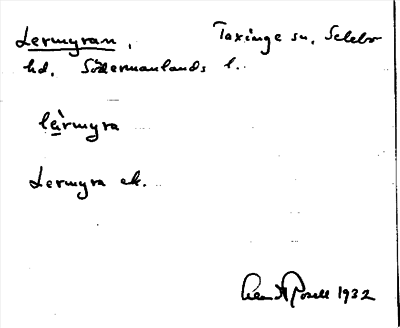 Lermyran, Taxinge sn. Selebo
hd. Södermanlands l.
lèrmyra
Lermyra ek.
1932